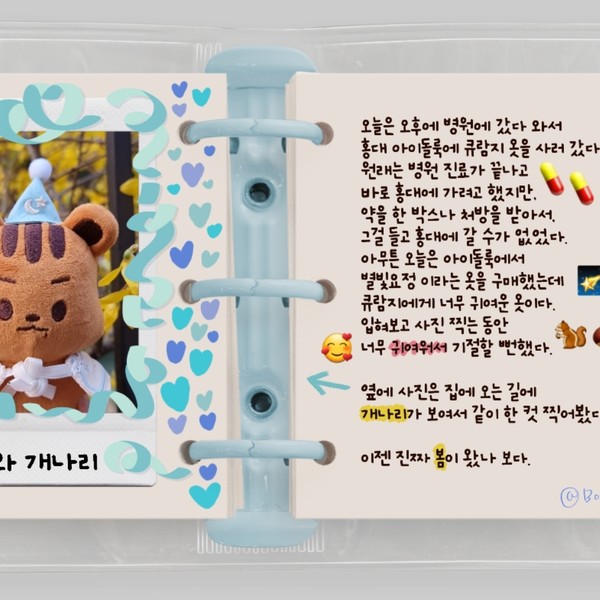 와 개나리
오늘은 오후에 병원에 갔다 와서
홍대 아이돌룩에 큐람지 옷을 사러 갔다
원래는 병원 진료가 끝나고
바로 홍대에 가려고 했지만,
약을 한 박스나 처방을 받아서,
그걸 들고 홍대에 갈 수가 없었다.
아무튼 오늘은 아이돌룩에서
별빛요정 이라는 옷을 구매했는데
큐람지에게 너무 귀여운 옷이다.
입혀보고 사진 찍는 동안
너무 귀여워서 기절할 뻔했다.
옆에 사진은 집에 오는 길에
개나리가 보여서 같이 한 컷 찍어봤다
이젠 진짜 봄이 왔나 보다.
@Bo